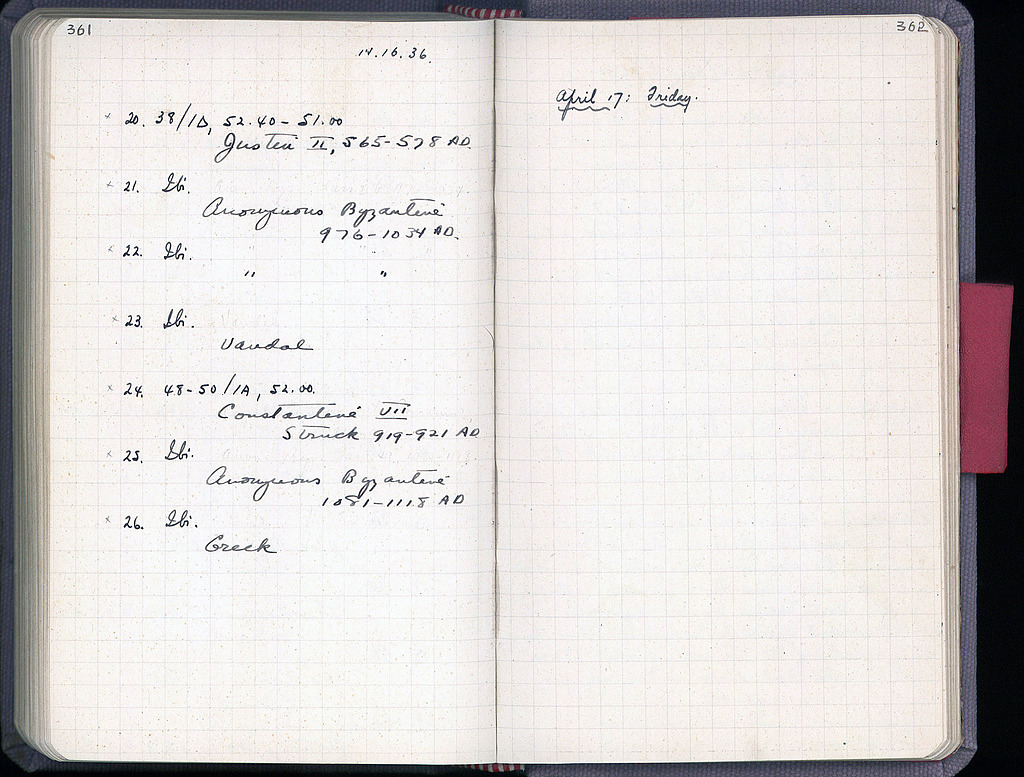 361
14.16.36.
× 20. 38/1Δ, 52.40 - 51.00
Justin II, 565-578 AD.
× 21. Ibi.
Anonymous Byzantine
976-1034 AD.
× 22. Ibi.
" "
× 23. Ibi.
Vandal
× 24. 48-50/1A, 52.00.
Constantine VII
Struck 919-921 AD
× 25. Ibi.
Anonymous Byzantine
1081-1118 AD
× 26. Ibi.
Greek
362
April 17: Friday.